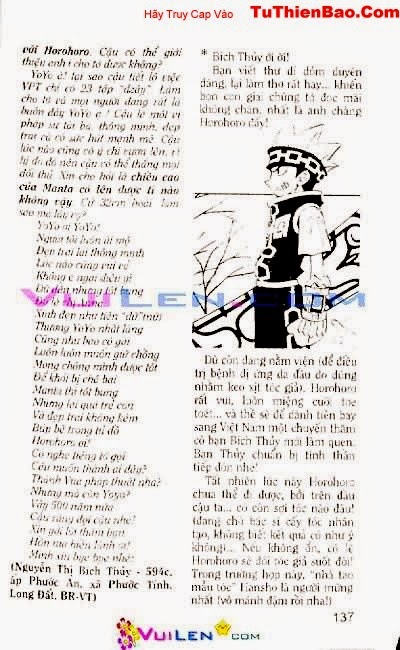 Hãy Truy Cap Vào TuThienBao.Com
với Horohoro. Cậu có thể giới
thiệu anh í cho tớ được không?
YoYo ê! tại sao cậu tiết lộ việc
VPT chỉ có 23 tập "dzậy". Làm
cho tớ và mọi người đang rất là
buồn đây YoYo ơ! Cậu là một vị
pháp sư tài ba, thông minh, đẹp
trai và có sức hút mạnh mẽ. Cậu
lúc nào cũng có ý chí vươn lên,
bị đó nên cậu có thể thắng mọi
đối thủ. Xin cho hỏi là chiều cao
của Manta có lên được tí nào
không vậy. Cứ 32cm hoài làm
sao mà lấy vợ?
YoYo ơi YoYo!
Người tôi luôn ái mộ
Đẹp trai lại thông minh
Lúc nào cũng vui vẻ
Không e ngại điều gì
Dù đến nhưng tốt bụng
Xinh đẹp như tiên "dữ" mừ
Thương YoYo nhất làng
Cũng như bao cô gái
Luôn luôn muốn giữ chồng
Mong chồng mình được tốt
Để khỏi bị chê bai
Manta thì tốt bụng
Nhưng lại quá trẻ con
Và đẹp trai không kém
Búp bê trong tủ đồ
Horohoro ơi!
Có nghe tiếng tớ gọi
Cậu muốn thành ai đây?
Thánh Vua pháp thuật nhá?
Nhưng mà còn Yoyo?
Vậy 500 năm nữa
Cậu ráng đợi cậu nhé!
Xin gửi lời thăm bạn
(Nguyễn Thị Bích Thủy - 594c,
ấp Phước An, xã Phước Tỉnh,
Long Đất, BR-VT)
* Bích Thủy ới ời!
Bạn viết thư dí dỏm duyên
dáng, lại làm thơ rất hay... khiến
bọn con giai chúng tớ đọc mãi
không chán, nhất là anh chàng
Horohoro đấy!
VuiLen.com
Dù còn đang nằm viện (để điều
trị bệnh dị ứng da đầu do dùng
nhầm keo xịt tóc giả), Horohoro
rất vui, luôn miệng cười toe
toét... và thề sẽ để dành tiền bay
sang Việt Nam một chuyến thăm
cô bạn Bích Thủy mới làm quen.
Bạn Thủy chuẩn bị tinh thần
tiếp đón nhé!
Tất nhiên lúc này Horohoro
chưa thể đi được, bởi trên đầu
cậu ta... có còn sợi tóc nào đâu!
(đang chờ bác sĩ cấy tóc nhân
tạo, không biết kết quả có như ý
không)... Nếu không ổn, có lẽ
Horohoro sẽ đội tóc giả suốt đời!
Trong trường hợp này, "nhà tạo
mẫu tóc" Hansho là người mừng
nhất (vớ mánh đậm rồi nha!)
137
VuiLen.com